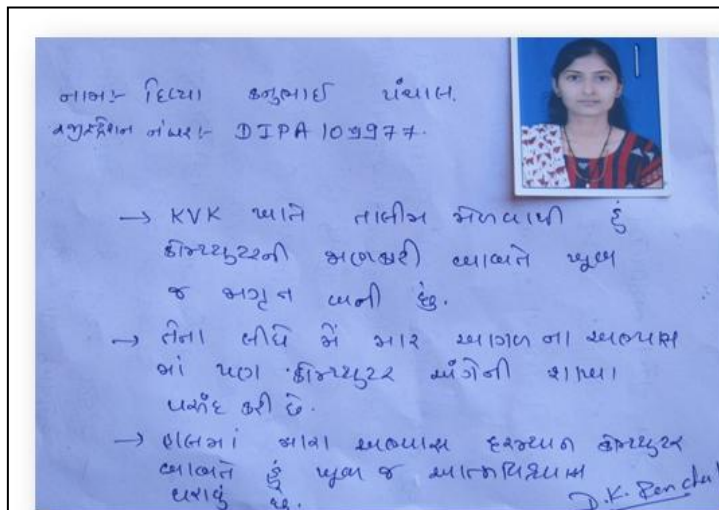 નામ:- દિવ્યા કનુભાઈ પંચાલ.
રજીસ્ટ્રેશન નંબર:- DIPA 109977.
→ KVK ખાતે તાલીમ મેળવાથી હું
કોમ્પ્યુટરની જાણકારી બાબતે ખૂબ
જ જાગૃત બની છું.
→ તેના લીધે મેં મારા આગળ ના અભ્યાસ
માં પણ કોમ્પ્યુટર અંગેની શાખા
પસંદ કરી છે.
→ હાલમાં મારા અભ્યાસ દરમ્યાન કોમ્પ્યુટર
બાબતે હું ખૂબ જ આત્મવિશ્વાસ
ધરાવું છું.
D.K. Panchal